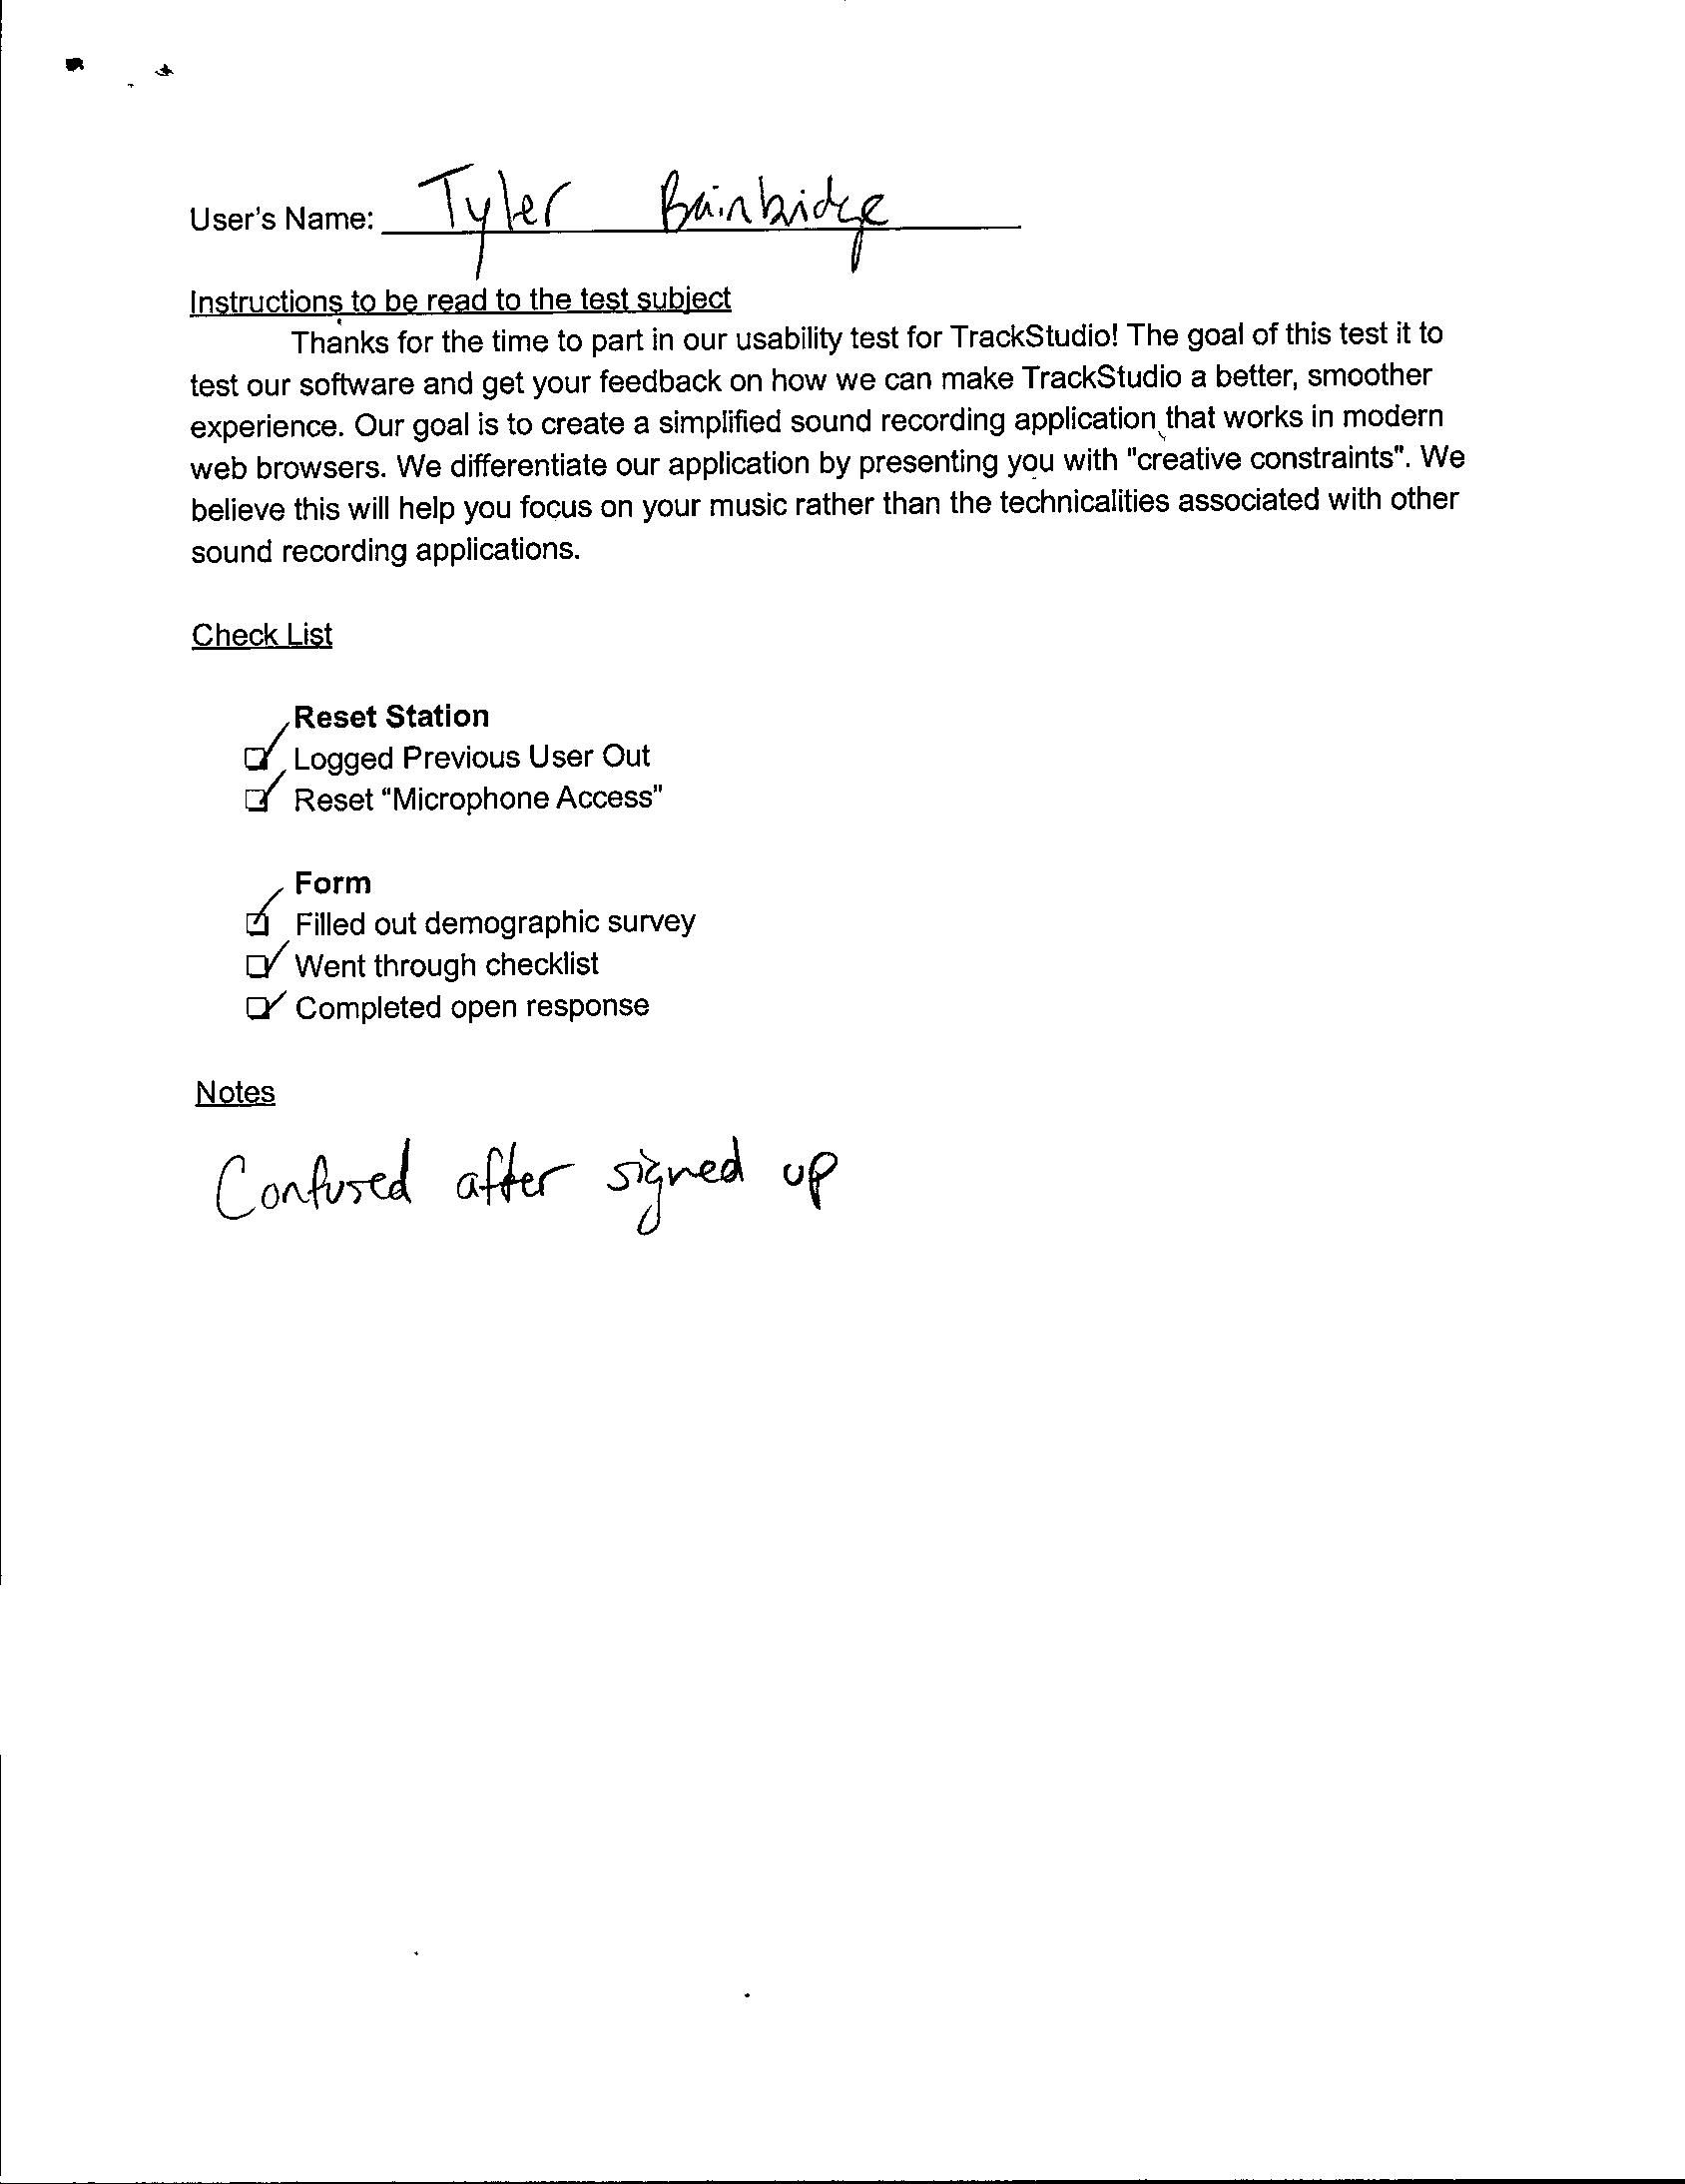 User's Name: Tyler Bainbridge
Instructions to be read to the test subject
Thanks for the time to part in our usability test for TrackStudio! The goal of this test it to
test our software and get your feedback on how we can make TrackStudio a better, smoother
experience. Our goal is to create a simplified sound recording application that works in modern
web browsers. We differentiate our application by presenting you with "creative constraints". We
believe this will help you focus on your music rather than the technicalities associated with other
sound recording applications.
Check List
Reset Station
Logged Previous User Out
Reset “Microphone Access”
Form
Filled out demographic survey
Went through checklist
Completed open response
Notes
Confused after signed up